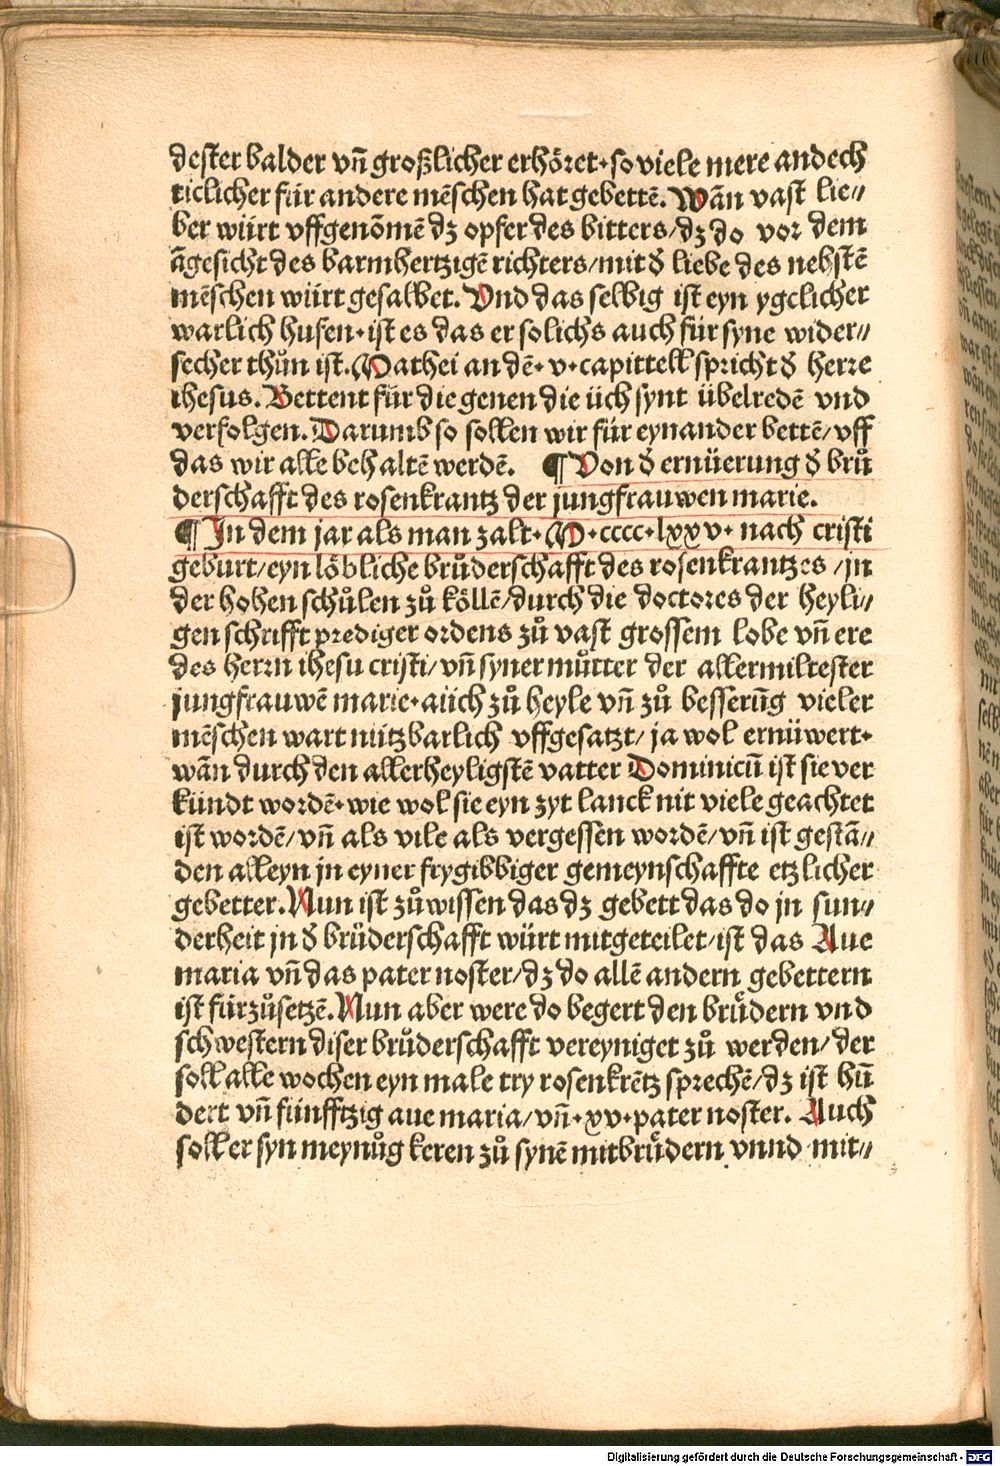 dester balder vñ großlicher erhöret· so viele mere andech
ticlicher für andere mēschen hat gebettē. Wān vast lie⸗
ber würt vffgenōmē dz opfer des bitters/ dz do vor dem
āgesicht des barmhertzigē richters/ mit ð liebe des nehstē
mēschen würt gesalbet. Vnd das selbig ist eyn ygelicher
warlich husen· ist es das er solichs auch für syne wider⸗
secher thůn ist. Mathei an dē· v· capittell spricht ð herre
ihesus. Bettent für die genen die üch synt übelredē vnd
verfolgen. Darumb so sollen wir für eynander bettē/ vff
das wir alle behaltē werdē. ¶ Von ð ernüerung ð brů
derschafft des rosenkrantz der jungfrauwen marie.
¶ In dem jar als man zalt· M· cccc· lxxv· nach cristi
geburt/ eyn löbliche brůderschafft des rosenkrantzes /in
der hohen schůlen zů köllē/ durch die doctores der heyli⸗
gen schrifft prediger ordens zů vast grossem lobe vñ ere
des herrn ihesu cristi/ vñ syner můtter der allermiltester
jungfrauwē marie· aüch zů heyle vñ zů besserūg vieler
mēschen wart nützbarlich vffgesatzt/ ja wol ernüwert·
wān durch den allerheyligstē vatter Dominicū ist sie ver
kündt wordē· wie wol sie eyn zyt lanck nit viele geachtet
ist wordē/ vñ als vile als vergessen wordē/ vñ ist gestā⸗
den alleyn in eyner frygibbiger gemeynschaffte etzlicher
gebetter. Nun ist zů wissen das dz gebett das do in sun⸗
derheit in ð brůderschafft würt mitgeteilet/ ist das Aue
maria vñ das pater noster/ dz do allē andern gebettern
ist fürzůsetzē. Nun aber were do begert den brůdern vnd
schwestern diser brůderschafft vereyniget zů werden/ der
soll alle wochen eyn male try rosenkrētz sprechē/ dz ist hū
dert vñ fünfftzig aue maria/ vñ· xv· pater noster. Auch
soll er syn meynůg keren zů synē mitbrůdern vnnd mit⸗
Digitalisierung gefördert durch die Deutsche Forschungsgemeinschaft - DFG